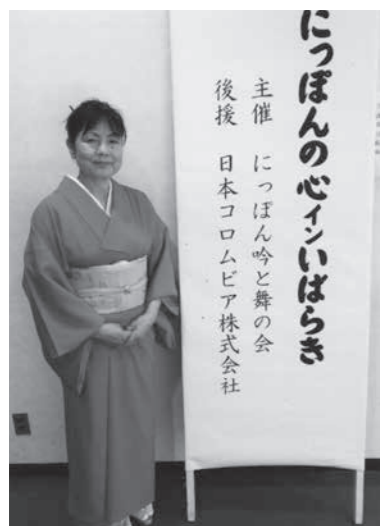 にっぽんの心インいばらき
主催 にっぽん吟と舞の会
後援 日本コロムビア株式会社